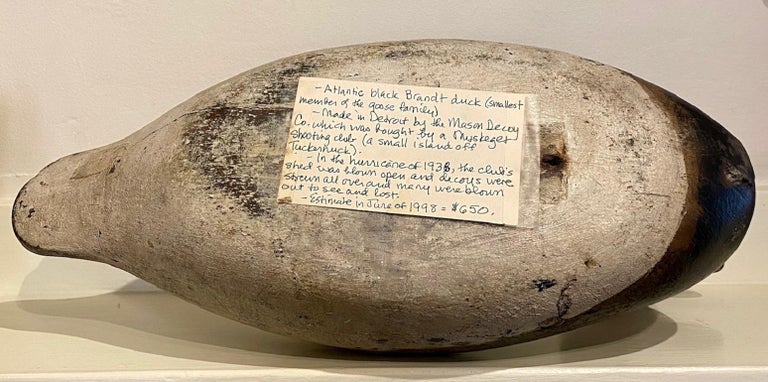 - Atlantic black Brandt duck (smallest
member of the goose family)
- Made in Detroit by the Mason Decoy
Co. which was bought by a Muskeget
shooting club (a small island off
Tuckernuck).
- In the hurricane of 1938, the club's
shed was blown open and decoys were
strewn all over and many were blown
out to see and lost.
- Estimate in June of 1998 = $650.